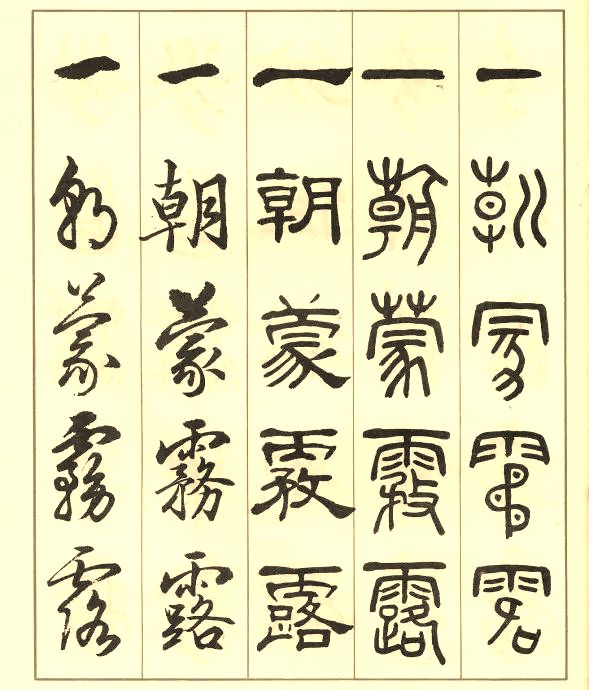 一朝蒙霧露
一朝蒙霚露
一朝蒙霚露
一朝蒙霧露
一朝蒙霧露